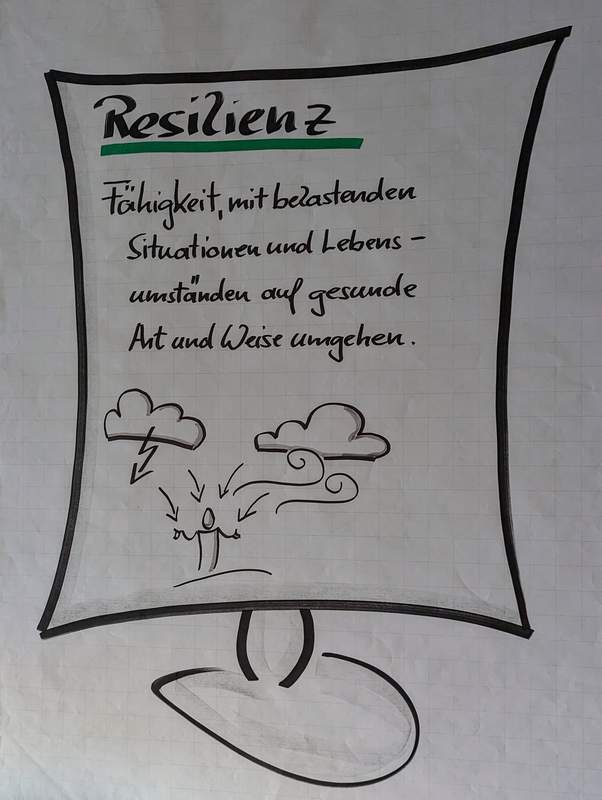 Resilienz
Fähigkeit, mit belastenden
Situationen und Lebens-
umständen auf gesunde
Art und Weise umgehen.